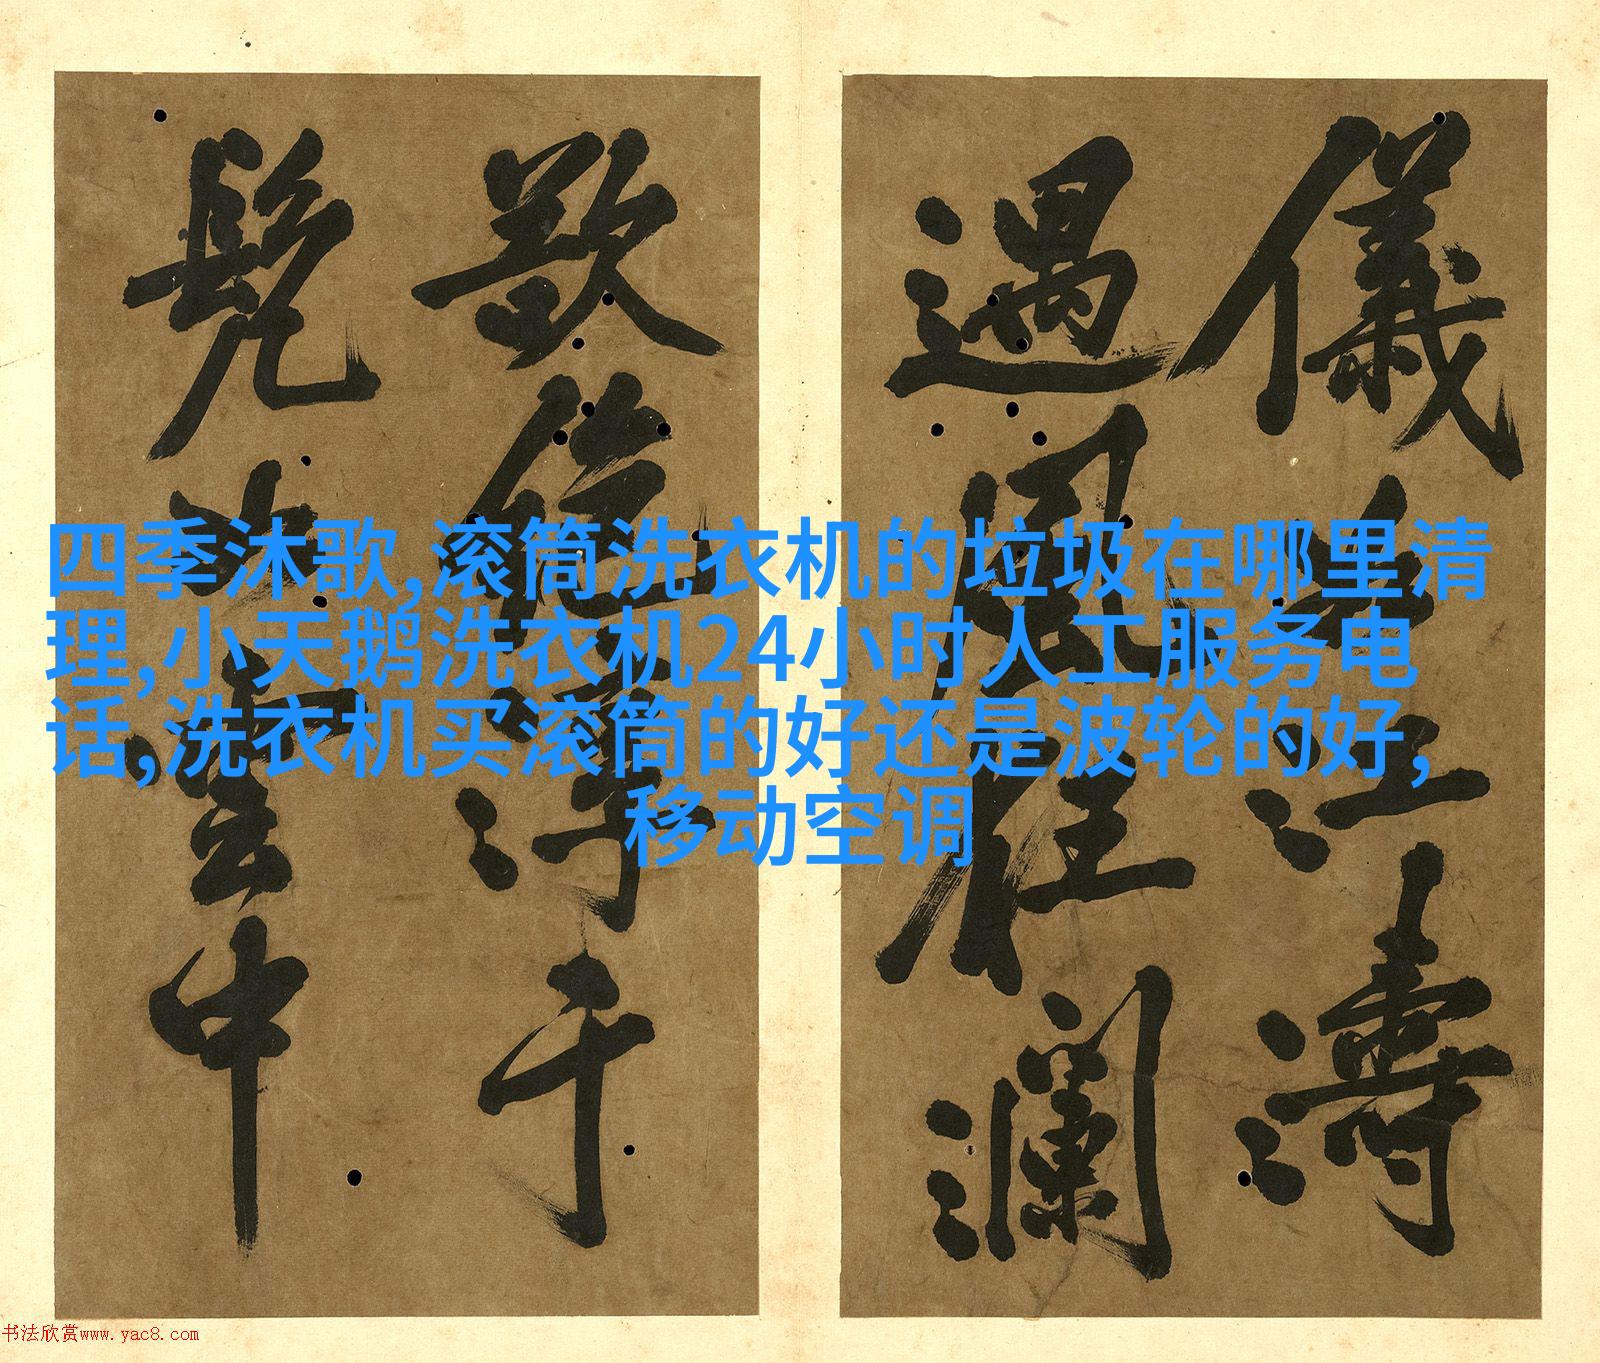 四季沐歌,滚筒洗衣机的垃圾在哪里清
理,小天鹅洗衣机24小时人工服务电
话,洗衣机买滚筒的好还是波轮的好,
移动空调
儀江濤
狂瀾
浮于
雲中
书法欣赏www.yac8.com